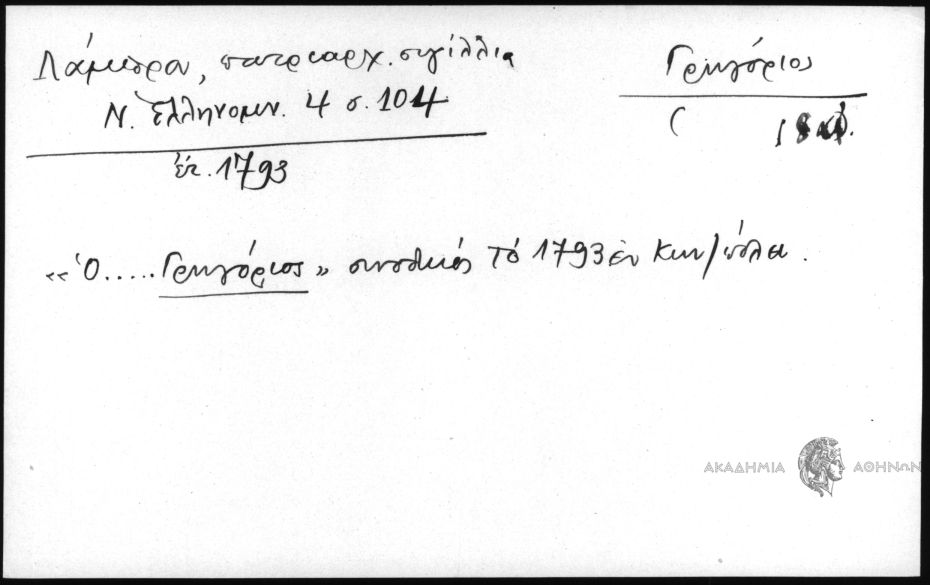 Λάμπρου, πατριαρχ. σιγίλλια
Ν. Ἑλληνομν. 4 σ. 104
ἐτ. 1793
Γρηγόριος
«Ὁ..... Γρηγόριος» συνοδικός τό 1793 ἐν Κων/πόλει.
ΑΚΑΔΗΜΙΑ ΑΘΗΝΩΝ